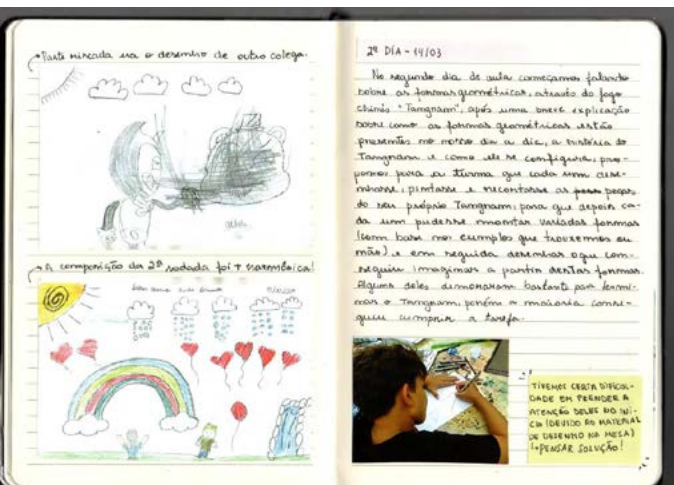 Parte riscada era o desenho de outro colega.
A composição da 2ª rodada foi + harmônica!
2º DIA - 14/03
No segundo dia de aula começamos falando
sobre as formas geométricas, através do jogo
chinês "Tangram", após uma breve explicação
sobre como as formas geométricas estão
presentes no nosso dia a dia, a história do
Tangram e como ele se configura, pro-
pomos para a turma que cada um dese-
nhasse, pintasse e recortasse as peças
do seu próprio Tangram, para que depois ca-
da um pudesse montar variadas formas
(com base nos exemplos que trouxemos ou
não) e em seguida desenhar o que con-
seguiu imaginar a partir destas formas.
Alguns deles demoraram bastante para termi-
nar o Tangram, porém a maioria conse-
guiu cumprir a tarefa.
TIVEMOS CERTA DIFICUL-
DADE EM PRENDER A
ATENÇÃO DELES NO INÍ-
CIO (DEVIDO AO MATERIAL
DE DESENHO NA MESA)
↳ PENSAR SOLUÇÃO!